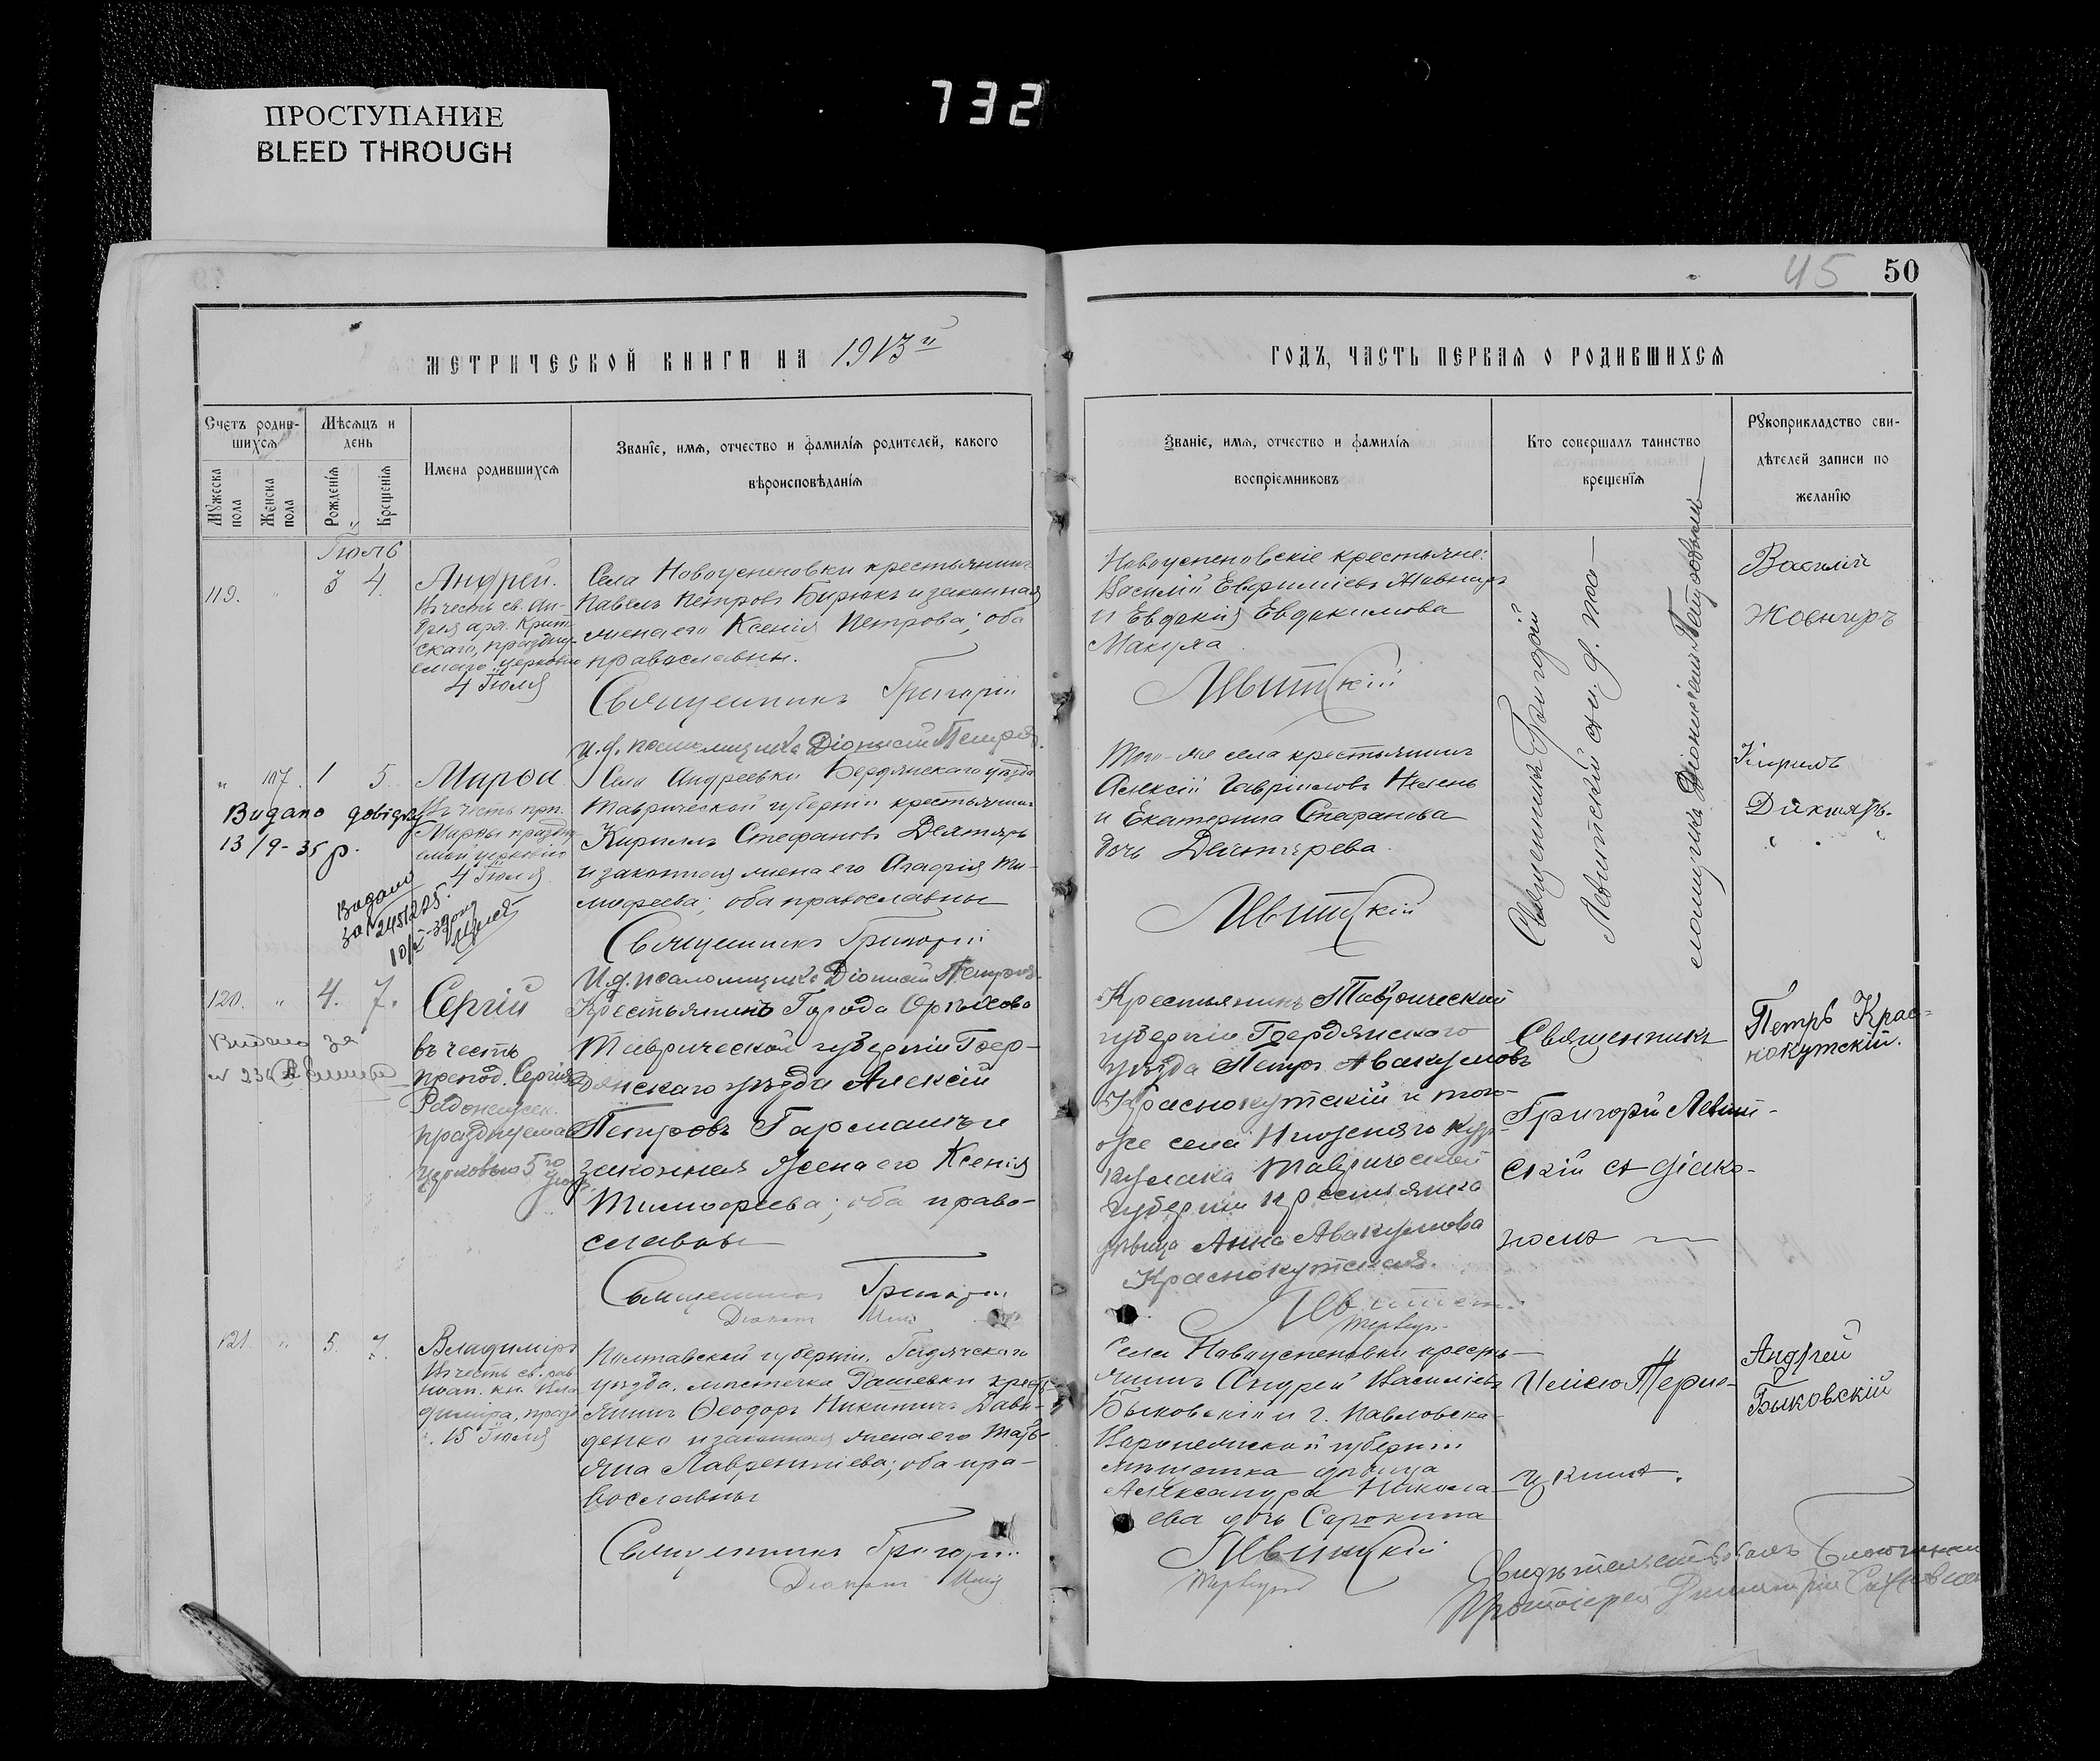 ПРОСТУПАНИЕ
BLEED THROUGH
732
45 50
МЕТРИЧЕСКОЙ КНИГИ НА 1913й
ГОДЪ, ЧАСТЬ ПЕРВАЯ О РОДИВШИХСЯ
Счетъ родив-
шихся
Мужеска пола
Женска пола
Мѣсяцъ и
день
Рожденія
Крещенія
Имена родившихся
Званіе, имя, отчество и фамилія родителей, какого
вѣроисповѣданія
Званіе, имя, отчество и фамилія
воспріемниковъ
Кто совершалъ таинство
крещенія
Рукоприкладство сви-
дѣтелей записи по
желанію
Іюль
119. " 3 4.
Андрей.
Въ честь св. Ан-
дрея арх. Крит-
скаго, праздну-
емаго церковію
4 Іюля
Села Новоуспеновки крестьянинъ
Павелъ Петровъ Бирюкъ и законная
жена его Ксенія Петрова; оба
православны.
Священникъ Григорій
И. д. псаломщика Діонисій Петров
Новоуспеновскіе крестьяне:
Василій Евфиміевъ Жовниръ
и Евдокія Евдокимова
Макуха
Левитскій
Священникъ Григорій
Левитскій съ и. д. пса-
ломщика Діонисіемъ
Василій
Жовниръ
" 107. 1 5.
Видано довідку
13/9-35 р.
Видано
за № 245/225.
Марфа
Въ честь прп.
Марфы праздну-
емой церковію
4 Іюля
Села Андреевки Бердянскаго уѣзда
Таврической губерніи крестьянинъ
Кириллъ Стефановъ Дехтярь
и законная жена его Агафія Ти-
мофеева; оба православны
Священникъ Григорій
И. д. псаломщика Діонисій Петров
Того-же села крестьянинъ
Алексій Гавріиловъ
и Екатерина Стефанова
дочь Дехтярева.
Левитскій
Кирилъ
120. " 4. 7.
Видано за
Сергій
въ честь
препод. Сергія
Радонежск.
празднуема
церковью 5го
Крестьянинъ Города Орѣхова
Таврической губерніи Бер-
дянскаго уѣзда Алексій
Петровъ Гармашъ и
законная жена его Ксенія
Тимофеева; оба право-
славны
Священникъ Григорій
Діаконъ
Крестьянинъ Таврической
губерніи Бердянскаго
уѣзда Петръ Авакумовъ
Краснокутскій и того-
же села
Таврической
губерніи крестьянка
дѣвица Анна Авакумова
Краснокутская.
Левитскій
Священникъ
Григорій Левит-
скій съ діако-
номъ
Петръ Крас-
нокутскій.
121. " 5. 7.
Владиміръ
Въ честь св. рав-
ноап. кн. Вла-
диміра, празд.
15 Іюля
Полтавской губерніи, Гадячскаго
уѣзда, мѣстечка Рашевки кресть-
янинъ Ѳеодоръ Никитинъ Дави-
денко и законная жена его Тать-
яна Лаврентіева; оба пра-
вославны
Священникъ Григорій
Діаконъ
Села Новоуспеновки кресть-
янинъ Андрей Василіевъ
Быковскій и г. Павловска
Воронежской губерніи
мѣщанка дѣвица
Александра Никола-
ева дочь Сорокина
Левитскій
Андрей
Быковскій
Свидѣтельствовалъ Благочинный
Протоіерей Димитрій